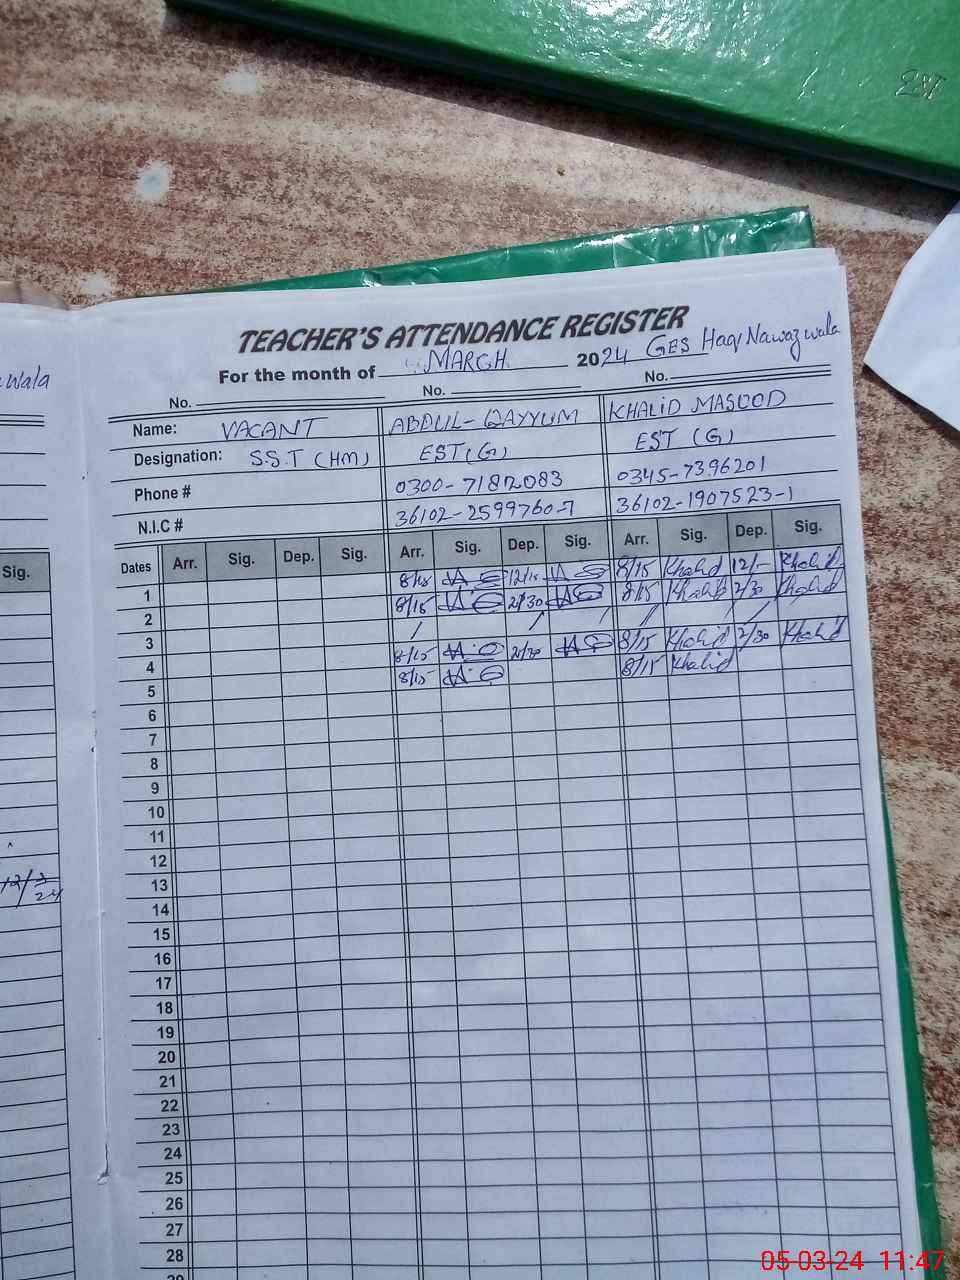 EST
TEACHER'S ATTENDANCE REGISTER
For the month of MARCH 2024 GES Haq Nawaz wala
wala
No. No. No.
Name: VACANT ABDUL-QAYYUM KHALID MASOOD
Designation: S.S.T (HM) EST (G) EST (G)
Phone # 0300-7182083 0345-7396201
N.I.C # 36102-2599760-7 36102-1907523-1
Sig. Dates Arr. Sig. Dep. Sig. Arr. Sig. Dep. Sig. Arr. Sig. Dep. Sig.
1 8/15 12/15 8/15 Khalid 12/- Khalid
2 8/15 2/30 8/15 Khalid 2/30 Khalid
3 / / / // / /
4 8/15 2/30 8/15 Khalid 2/30 Khalid
5 8/15 8/15 Khalid
6
7
8
9
10
11
12
13
14
15
16
17
18
19
20
21
22
23
24
25
26
27
28
29
05-03-24 11:47